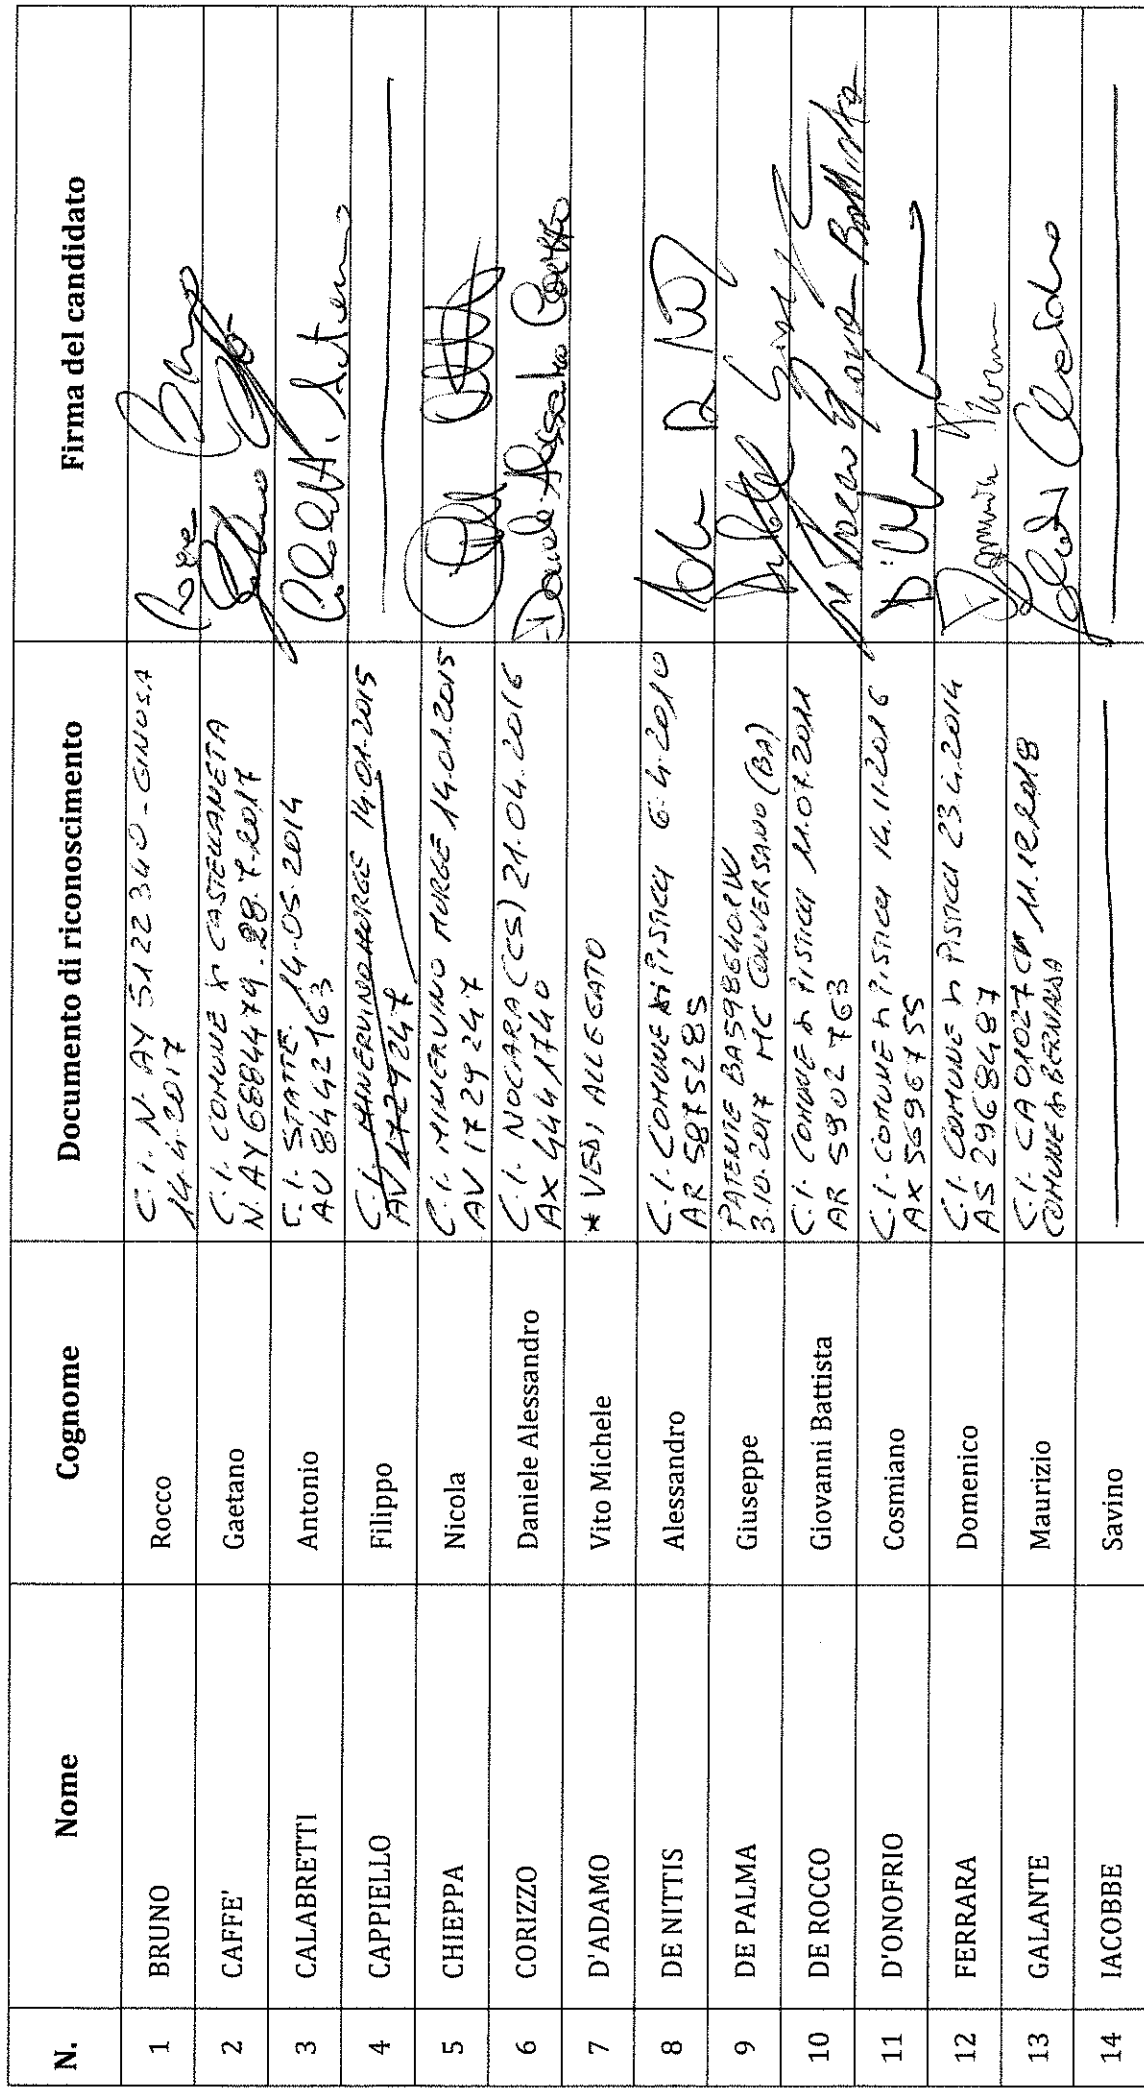 N. Nome Cognome Documento di riconoscimento Firma del candidato
1 BRUNO Rocco C.I. N. AY 5122340 - GINOSA
14.4.2017
2 CAFFE' Gaetano C.I. COMUNE DI CASTELLANETA
N. AY 6884479 - 28.7.2017
3 CALABRETTI Antonio C.I. STATTE. 14-05-2014 Calabretti Antonio
AU 8442163
4 CAPPIELLO Filippo C.I. MINERVINO MURGE 14.01.2015
AV 1729247
5 CHIEPPA Nicola C.I. MINERVINO MURGE 14.01.2015
AV 1729247
6 CORIZZO Daniele Alessandro C.I. NOCARA (CS) 21.04.2016 Daniele Alessandro Corizzo
AX 4441740
7 D'ADAMO Vito Michele * VEDI ALLEGATO
8 DE NITTIS Alessandro C.I. COMUNE DI PISTICCI 6.4.2010
AR 5875285
9 DE PALMA Giuseppe PATENTE BA5986401W
3.10.2017 MC CONVERSANO (BA)
10 DE ROCCO Giovanni Battista C.I. COMUNE DI PISTICCI 11.07.2011 De Rocco Giovanni Battista
AR 5902763
11 D'ONOFRIO Cosmiano C.I. COMUNE DI PISTICCI 14.11.2016
AX 5696755
12 FERRARA Domenico C.I. COMUNE DI PISTICCI 23.4.2014
AS 2968487
13 GALANTE Maurizio C.I. CA 01027CM 11.12.2018
COMUNE DI BERNALDA
14 IACOBBE Savino